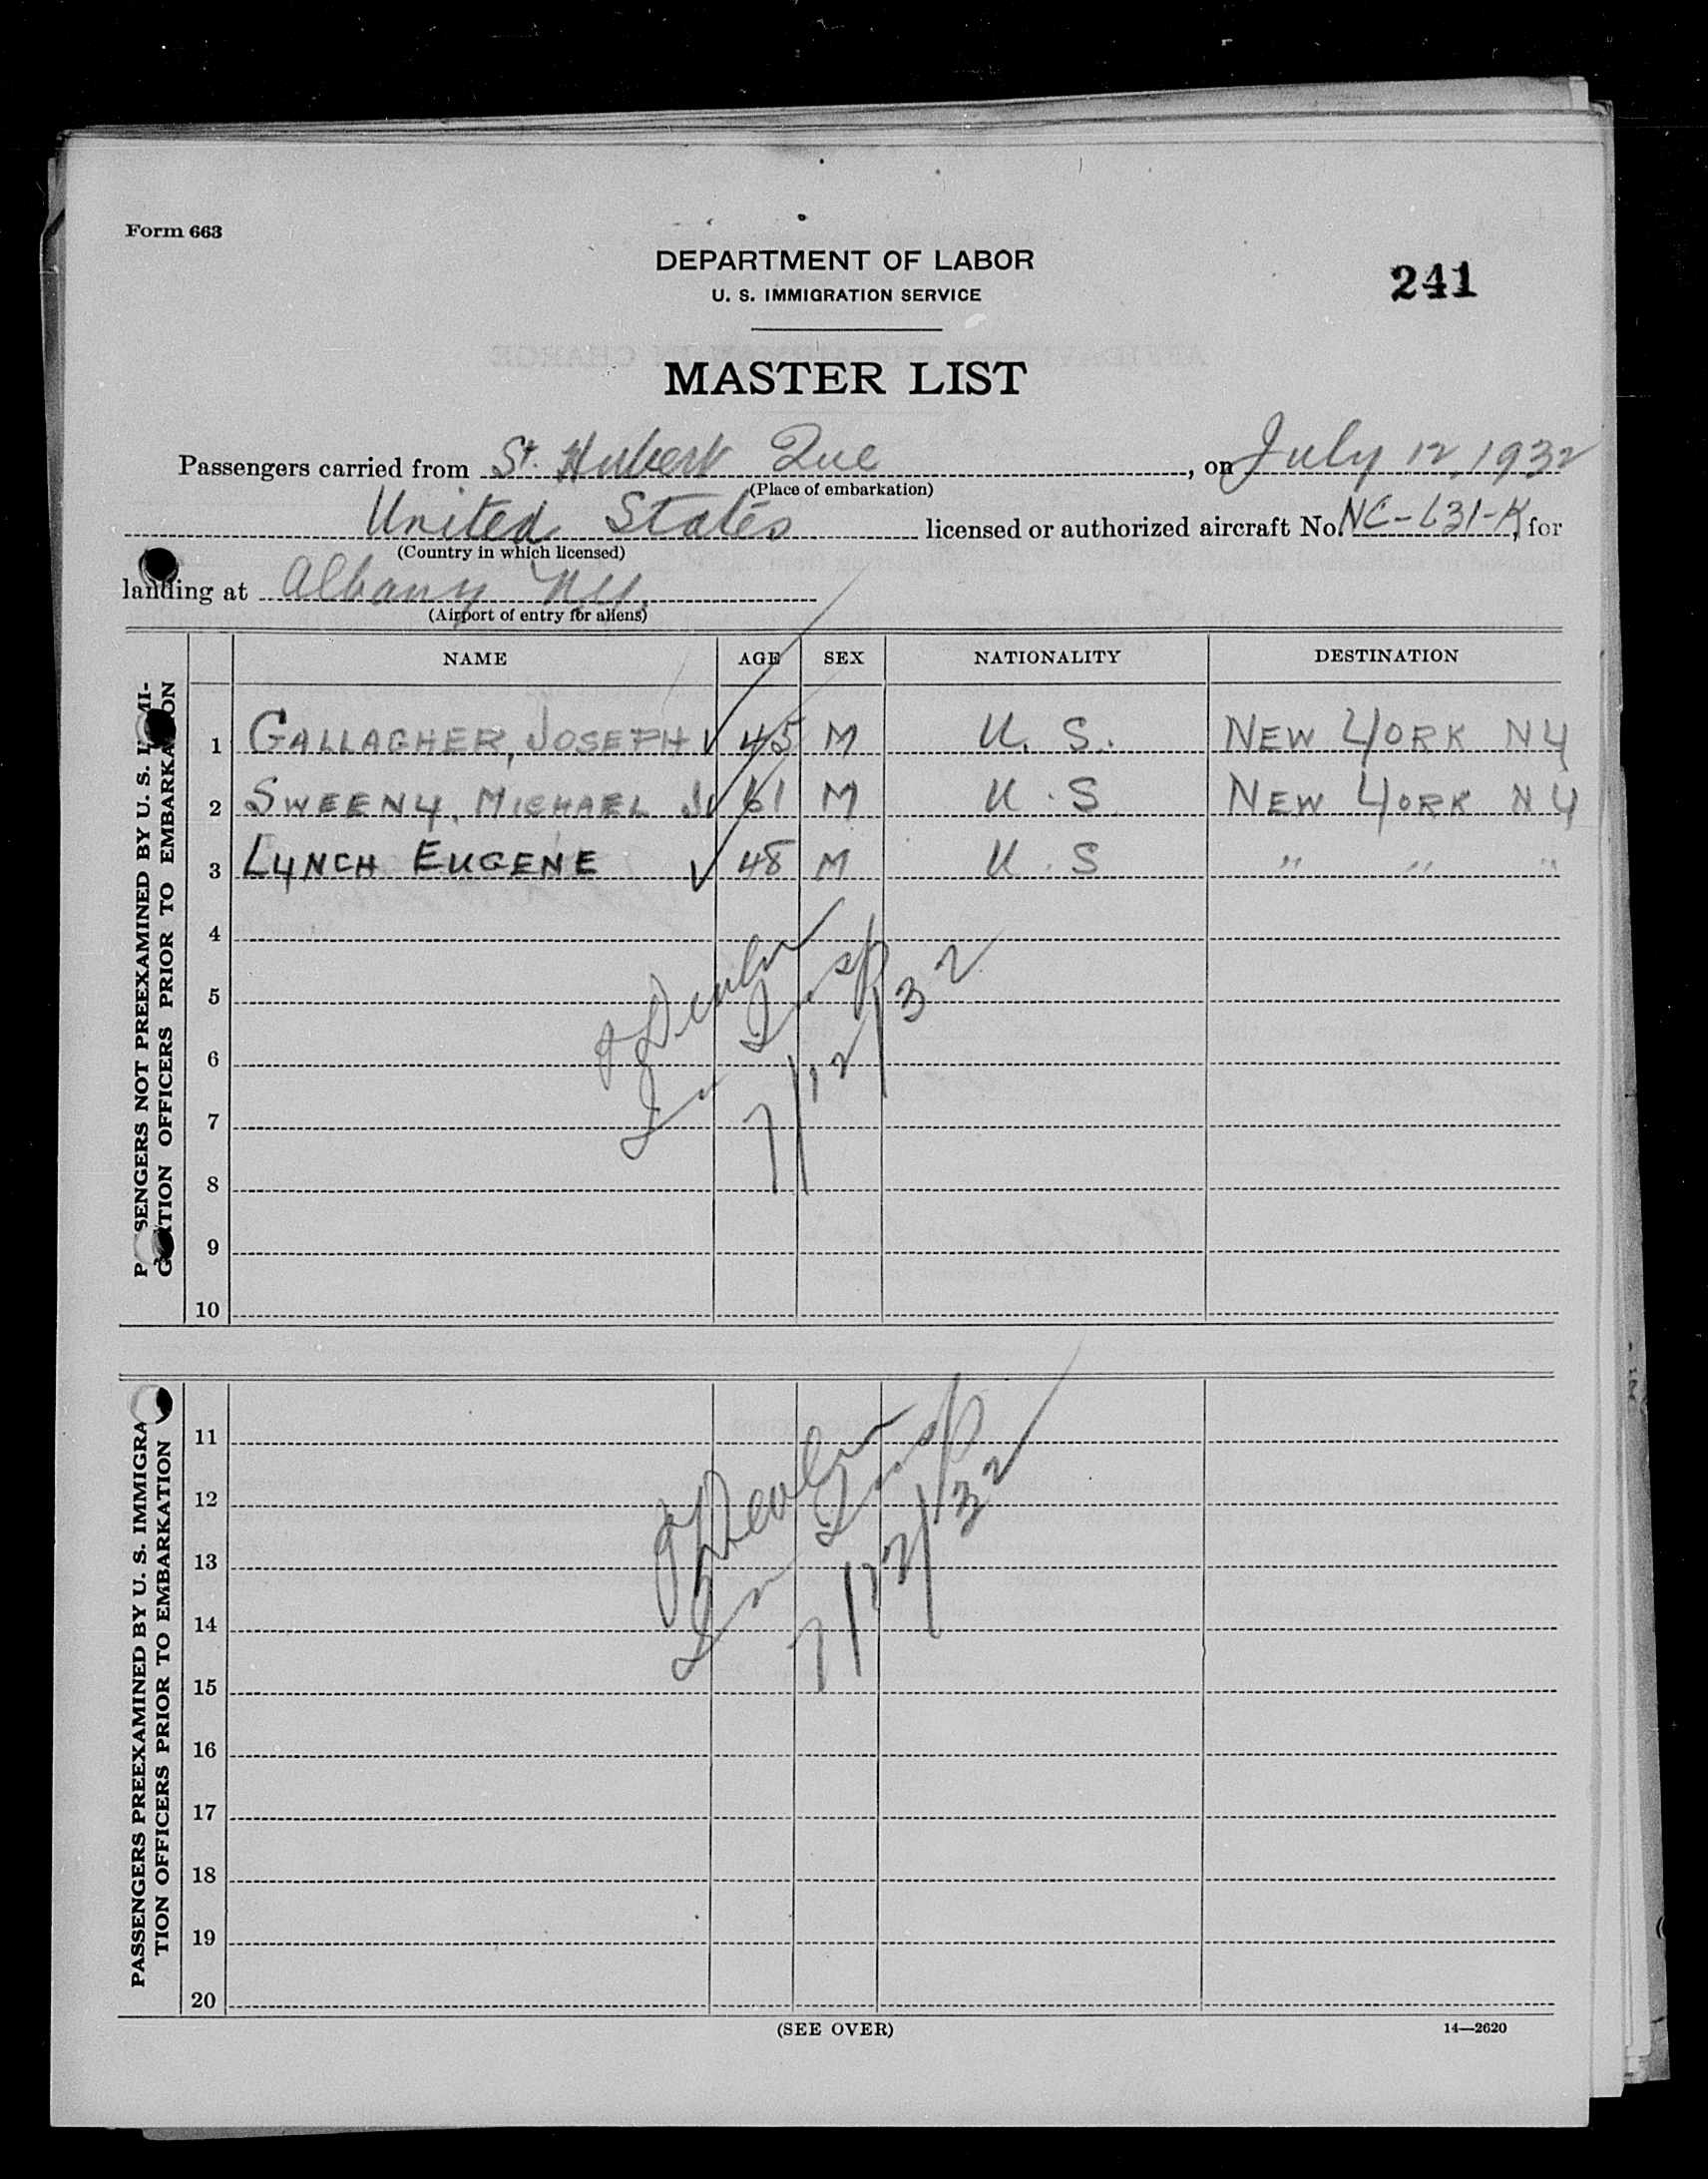 Form 663
DEPARTMENT OF LABOR
U. S. IMMIGRATION SERVICE
241
MASTER LIST
Passengers carried from St. Hubert Que, on July 12, 1932
(Place of embarkation)
United States licensed or authorized aircraft No. NC-631-K, for
(Country in which licensed)
landing at Albany N.Y.
(Airport of entry for aliens)
NAME AGE SEX NATIONALITY DESTINATION
PASSENGERS NOT PREEXAMINED BY U. S. IMMI-
GRATION OFFICERS PRIOR TO EMBARKATION
1 GALLAGHER, JOSEPH ✓ 45 M U. S. NEW YORK NY
2 SWEENY, MICHAEL J ✓ 61 M U. S NEW YORK NY
3 LYNCH EUGENE ✓ 48 M U. S " " "
4
5
6
7
8
9
10
Insp
7/12/32
PASSENGERS PREEXAMINED BY U. S. IMMIGRA-
TION OFFICERS PRIOR TO EMBARKATION
11
12
13
14
15
16
17
18
19
20
Insp
7/12/32
(SEE OVER)
14—2620